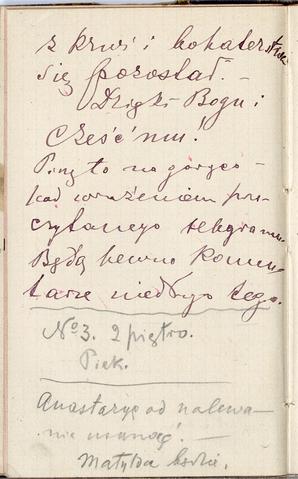 z krwi i bohaterstwa
się pozostał. –
Dzięki Bogu i
cześć mu!
Piszę to na gorąco –
pod wrażeniem prze-
czytanego telegramu
Będą pewno komen-
tarze niedługo tego.
No 3. 2 piętro.
Piek.
Anastazyę od nalewa-
nia usunąć. –
Matylda będzie.